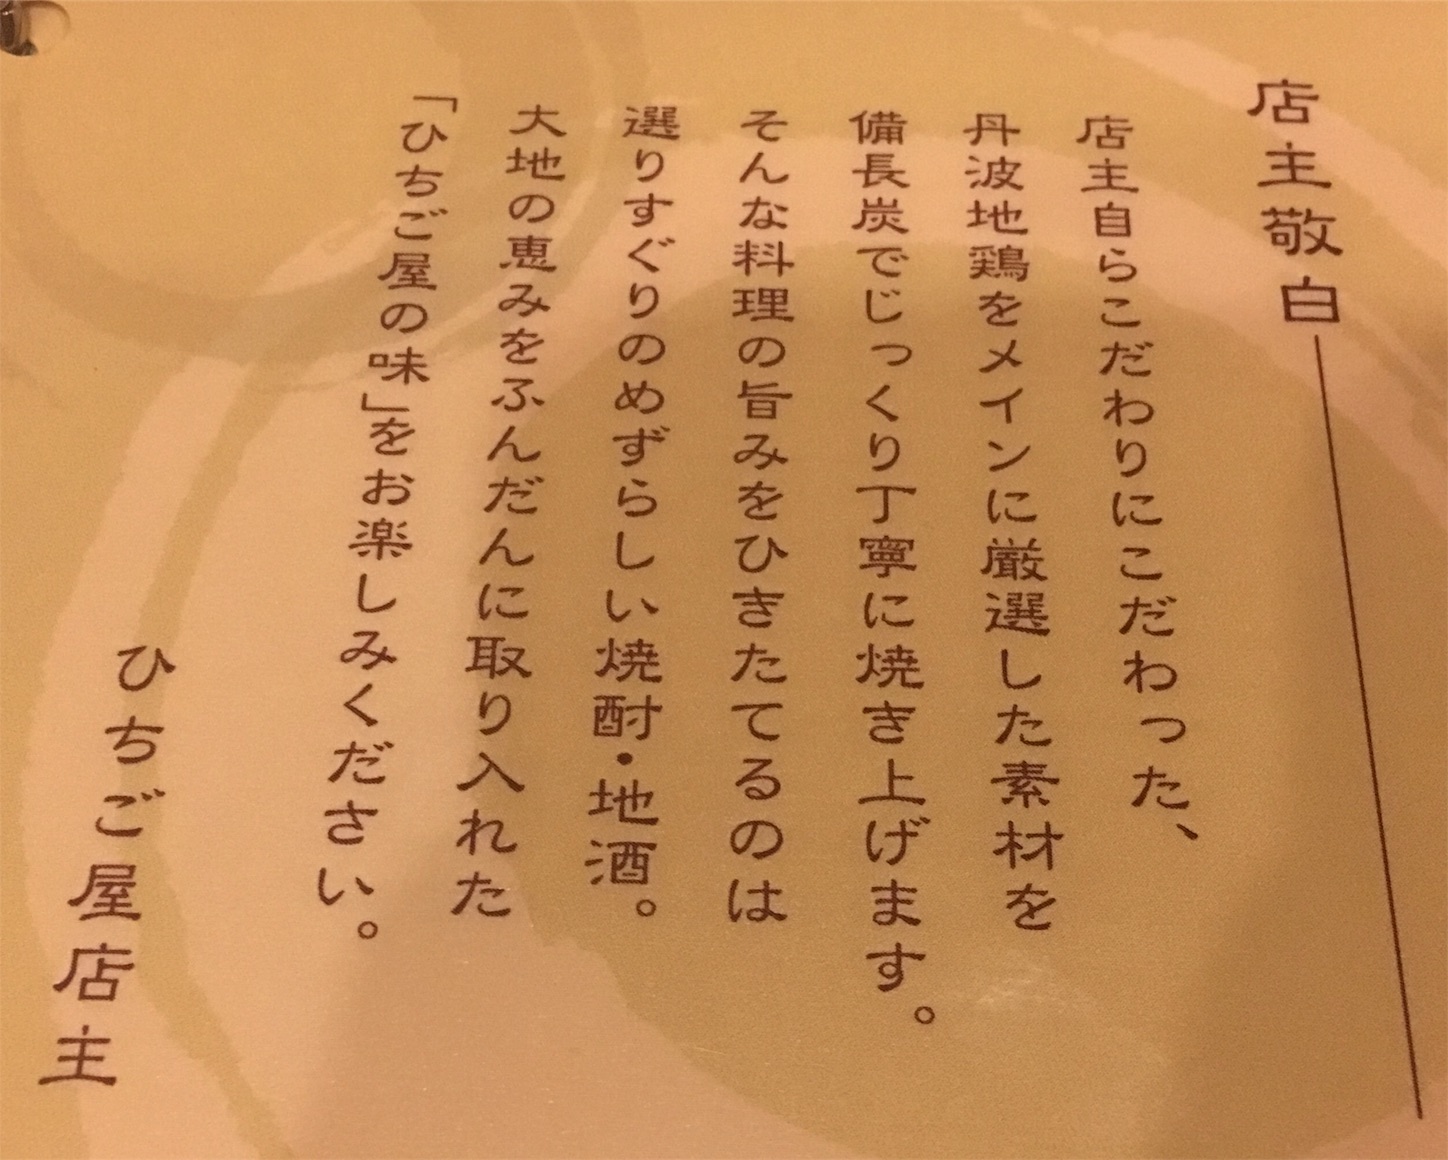 店主敬白
店主自らこだわりにこだわった、
丹波地鶏をメインに厳選した素材を
備長炭でじっくり丁寧に焼き上げます。
そんな料理の旨みをひきたてるのは
選りすぐりのめずらしい焼酎・地酒。
大地の恵みをふんだんに取り入れた
「ひちご屋の味」をお楽しみください。
ひちご屋店主